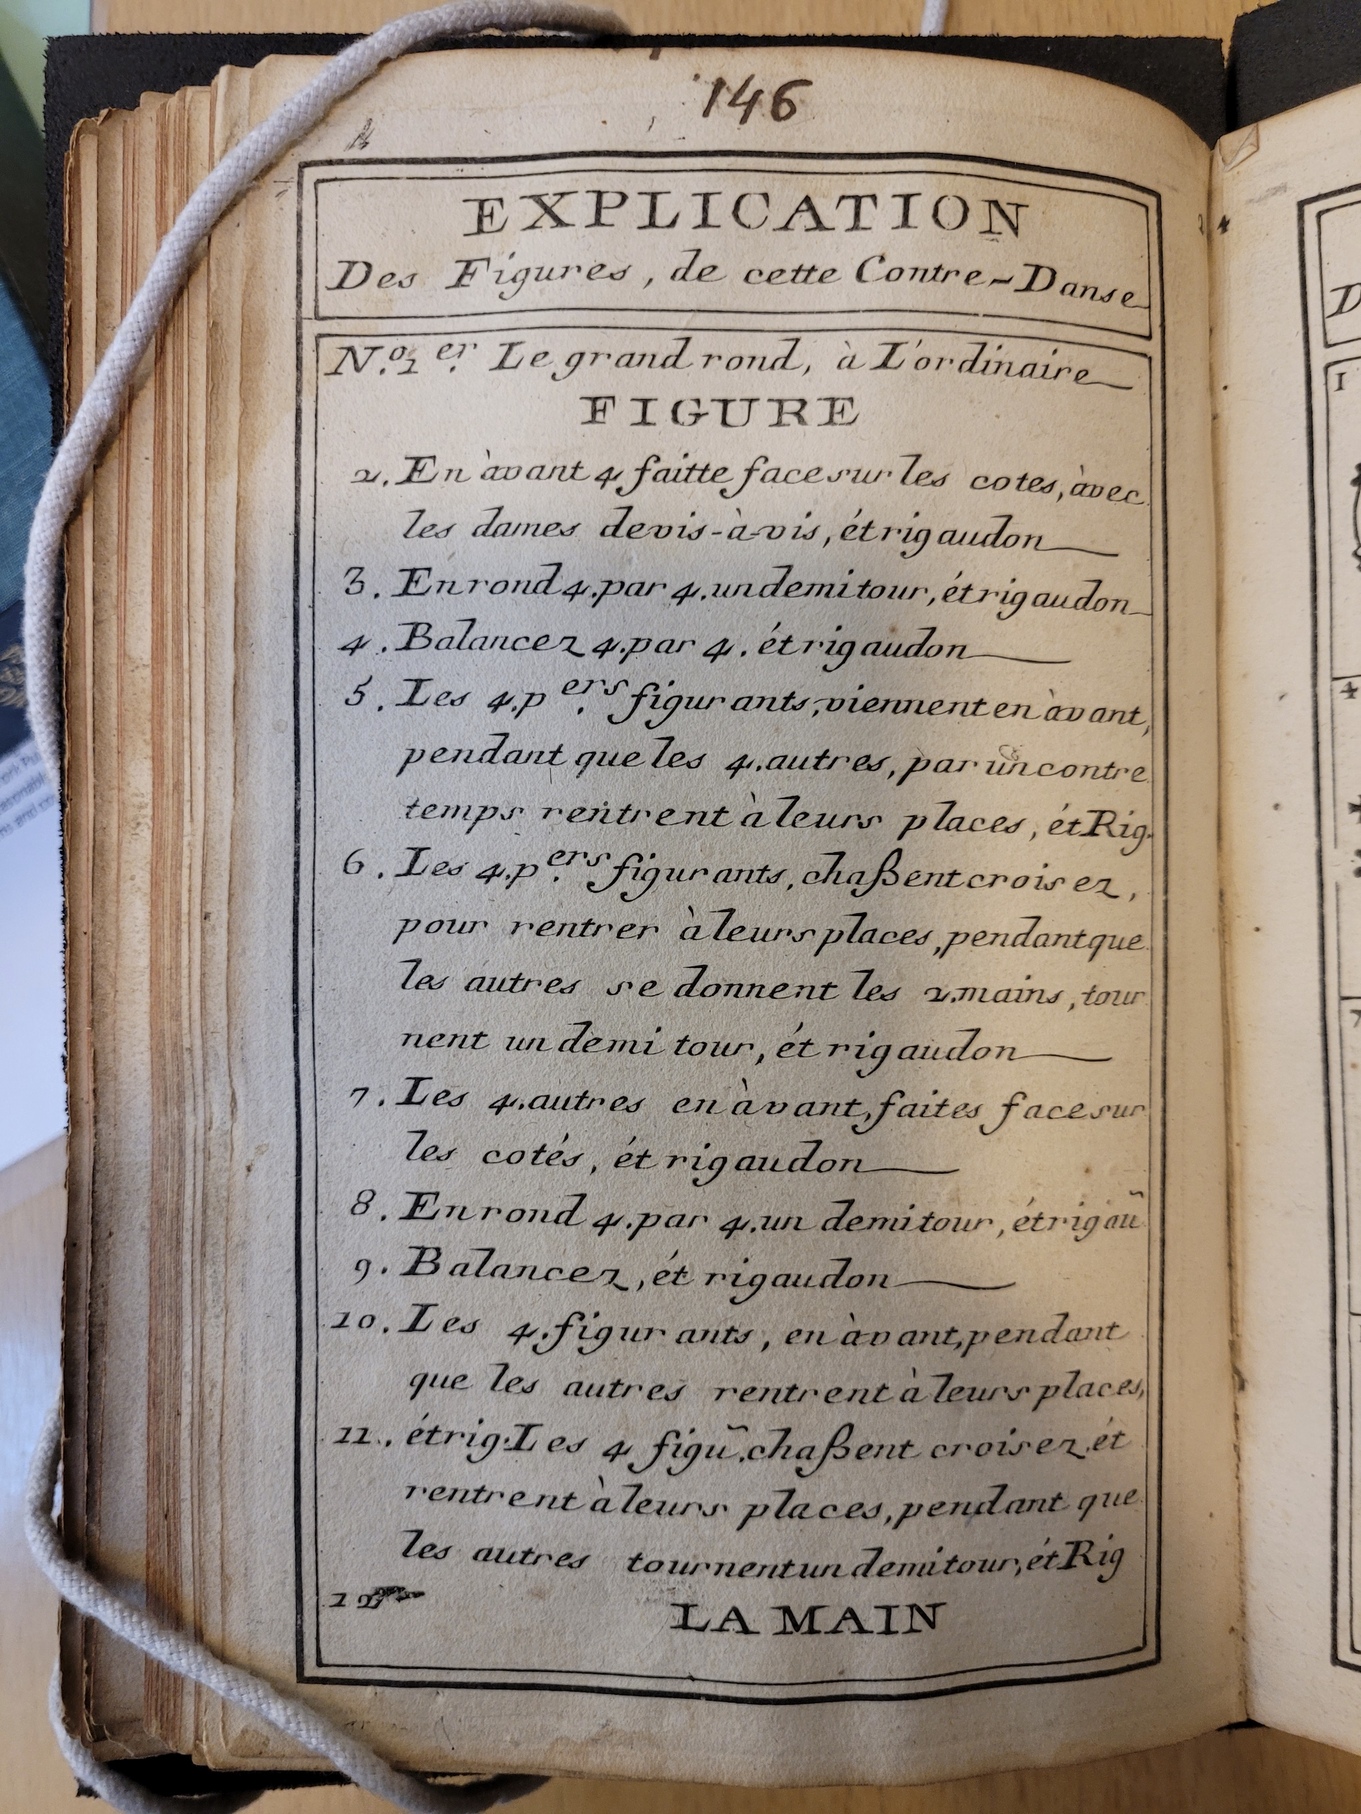 146
EXPLICATION
Des Figures, de cette Contre-Danse
N.º 1.er Le grand rond, à L'ordinaire
FIGURE
2. En àvant 4 faitte face sur les cotes, àvec
les dames de vis-à-vis, ét rigaudon
3. En rond 4. par 4. un demi tour, ét rigaudon
4. Balancez 4. par 4. ét rigaudon
5. Les 4. p.ers figurants, viennent en àvant,
pendant que les 4. autres, par un contre
temps rentrent à leurs places, ét Rig.
6. Les 4. p.ers figurants, chaßent croisez,
pour rentrer à leurs places, pendant que
les autres se donnent les 2. mains, tour
nent un demi tour, ét rigaudon
7. Les 4. autres en àvant, faites face sur
les cotés, ét rigaudon
8. En rond 4. par 4. un demi tour, ét rigaũ
9. Balancez, ét rigaudon
10. Les 4. figurants, en àvant, pendant
que les autres rentrent à leurs places,
11. ét rig. Les 4 figũ. chaßent croisez ét
rentrent à leurs places, pendant que
les autres tournent un demi tour, ét Rig
12
LA MAIN
D
1
4
7